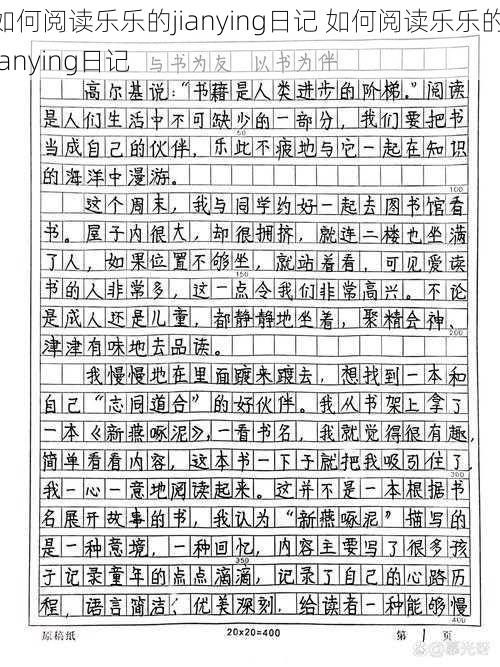 如何阅读乐乐的jianying日记 如何阅读乐乐的
anying日记
与书为友 以书为伴
高尔基说:“书籍是人类进步的阶梯。”阅读
是人们生活中不可缺少的一部分,我们要把书
50
当成自己的伙伴,乐此不疲地与它一起在知识
的海洋中漫游。
100
这个周末,我与同学约好一起去图书馆看
书。屋子内很大,却很拥挤,就连二楼也坐满
了人,如果位置不够坐,就站着看,可见爱读
150
书的人非常多,这一点令我们非常高兴。不论
是成人还是儿童,都静静地坐着,聚精会神、
200
津津有味地去品读。
我慢慢地在里面踱来踱去,想找到一本和
自己“志同道合”的好伙伴。我从书架上拿了
一本《新燕啄泥》,一看书名,我就觉得很有趣,
简单看看内容,这本书一下子就把我吸引住了,
300
我一心一意地阅读起来。这并不是一本根据书
名展开故事的书,我认为“新燕啄泥”描写的
是一种意境,一种回忆,内容主要写了很多孩
350
子记录童年的点点滴滴,记录了自己的心路历
程,语言简洁、优美深刻,给读者一种能够慢
400
原稿纸 20×20=400 第 1 页